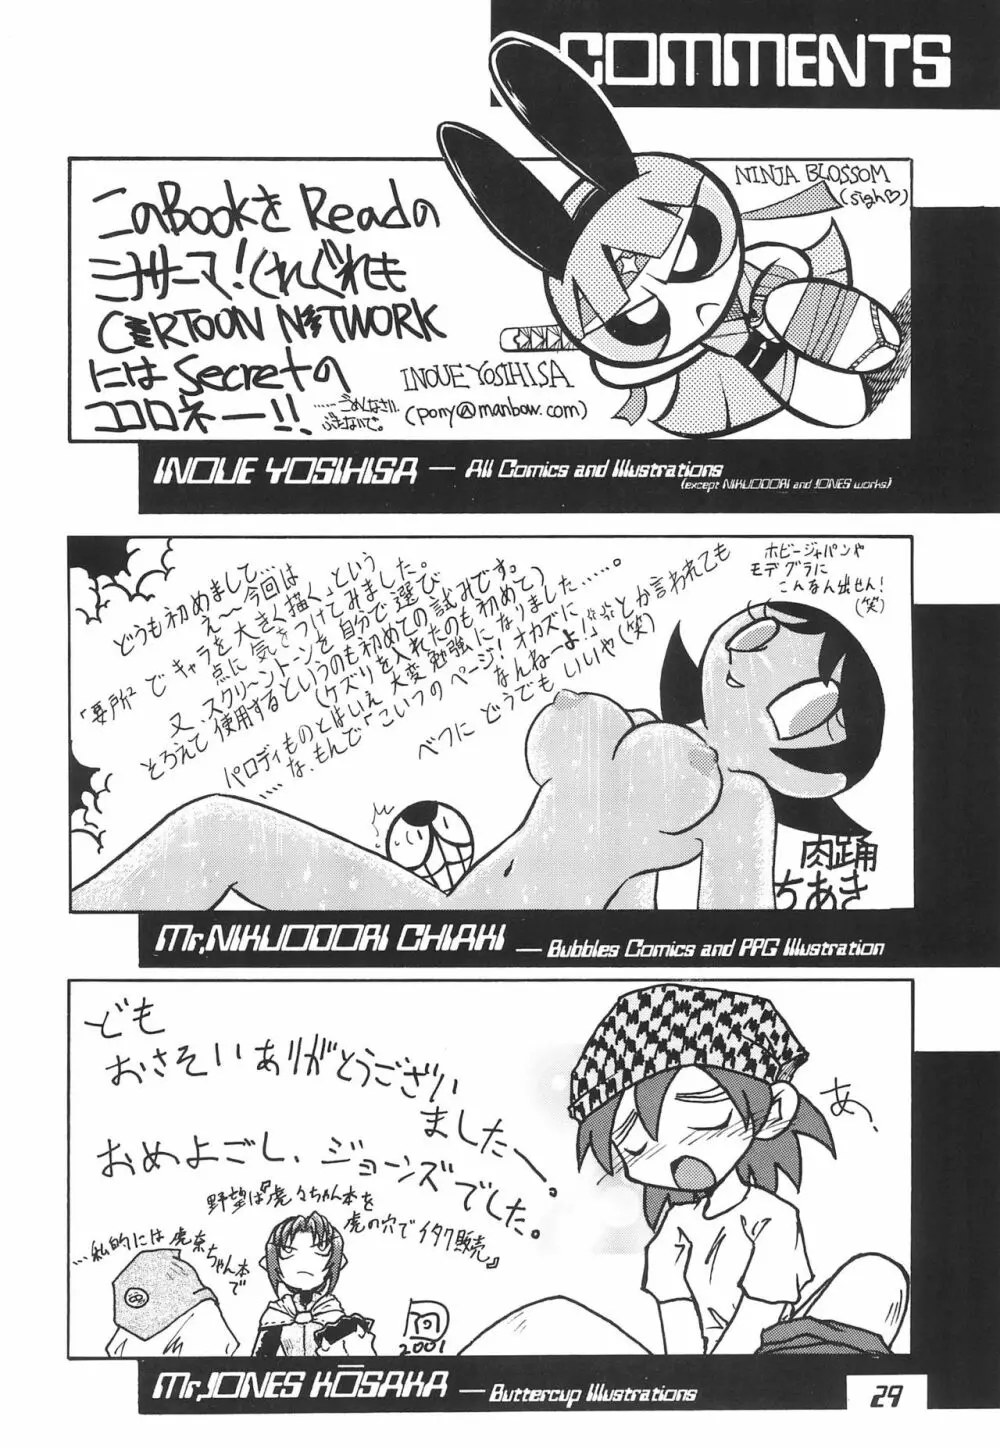 COMMENTS
NINJA BLOSSOM
(sigh♡)
このBookを Readの
ミナサーマ!くれぐれも
CARTOON NETWORK
には Secretの
ココロネー!!
……ごめんなさい、
INOUE YOSIHISA
(pony@manbow.com)
INOUE YOSIHISA — All Comics and Illustrations
(except NIKUODORI and JONES works)
どうも初めまして…
え〜今回は
「要所」でキャラを大きく描く」という
点に気をつけてみました。
又、スクリーントーンを自分で選び
とろえて使用するというのも初めての試みです。
(ケズリを入れたのも初めて)
パロディものとはいえ大変勉強になりました……。
な、もんで「こいつのページ!オカズに
なんねーよ!」とか言われても
べつに どうでもいいや(笑)
ホビージャパンや
モデグラに
こんなん出せん!
(笑)
肉踊
ちあき
Mr,NIKUODORI CHIAKI — Bubbles Comics and PPG Illustration
ども
おさそいありがとうござい
ましたー。
おめよごし、ジョーンズでした。
野望は『虎々ちゃん本を
虎の穴でイタク販売』
2001
あ、
Mr,JONES KŌSAKA — Buttercup Illustrations
29